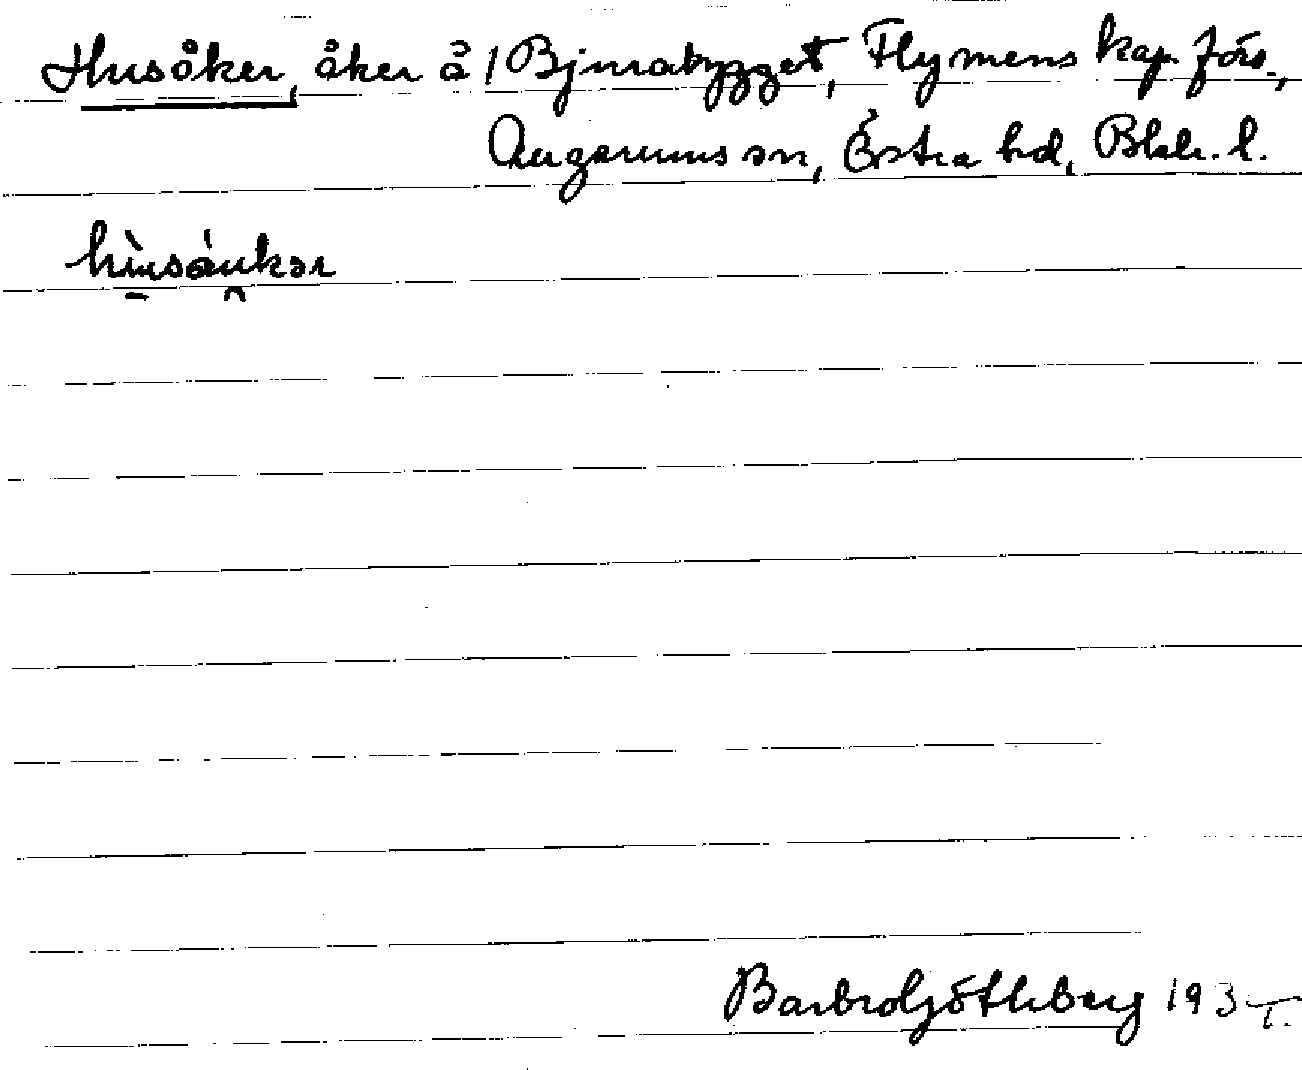 Husåker, åker å 1 Bjurabygget, Flymens kap. förs.,
Augerums sn, Östra hd, Blek. l.
hùsáukər
Barbro Götheberg 193